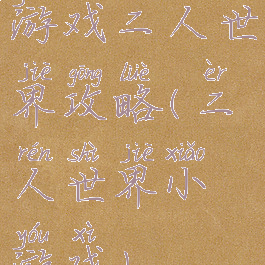 游戏二人世
jiè gōng lüè èr
界攻略(二
rén shì jiè xiǎo
人世界小
yóu xì
游戏)